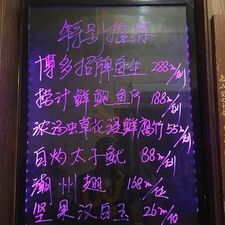 特别推荐
博多招牌百生 288元/例
指汁鲜鲍鱼片 188元/例
浓汤虫草花浸鲜腐竹 55元/例
白灼太子鱿 88元/例
潮州翅 168元/位
坚果汉白玉 26元/位